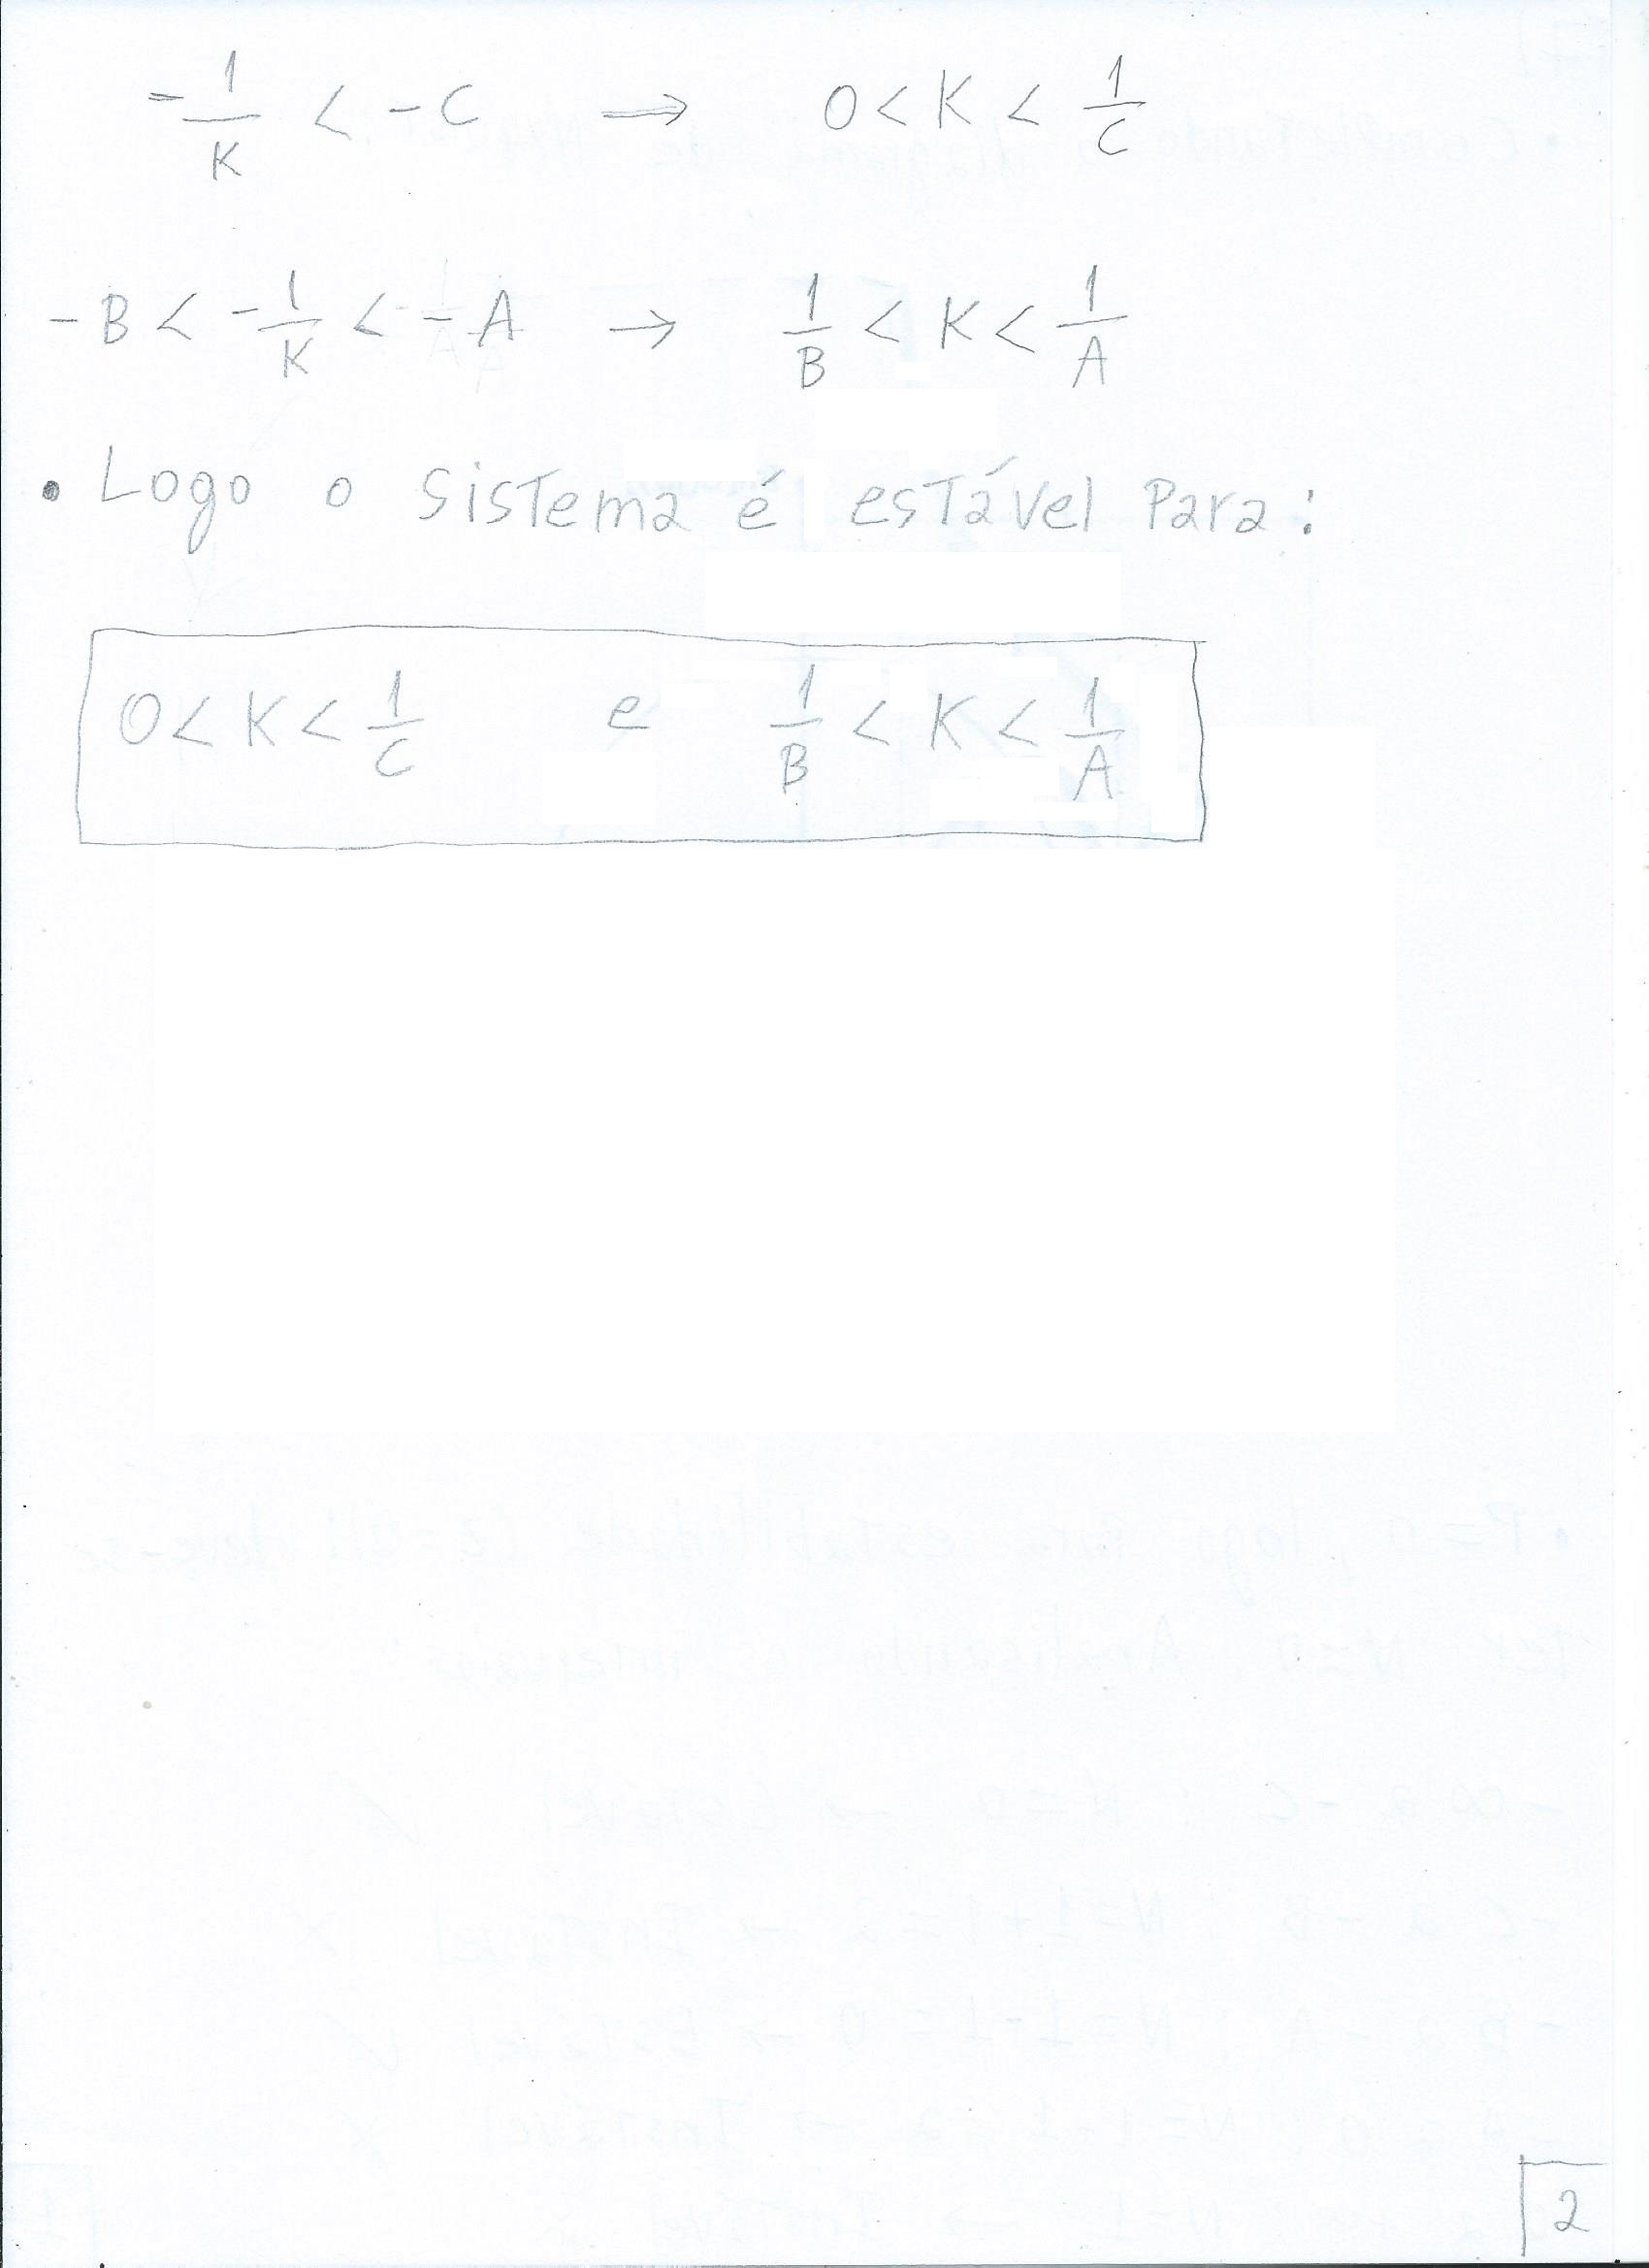 -1/K < -C → 0 < K < 1/C
-B < -1/K < -A → 1/B < K < 1/A
• Logo o sistema é estável para:
0 < K < 1/C e 1/B < K < 1/A
2